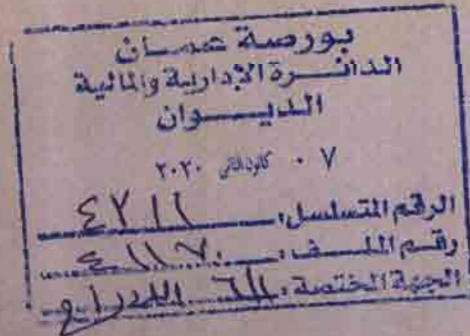 بورصة عمان
الدائرة الإدارية والمالية
الديوان
٠٧ كانون الثاني ٢٠٢٠
الرقم المتسلسل: ٤٢١١
رقم الملف: ٤١١٧٠
الجهة المختصة: الادراج